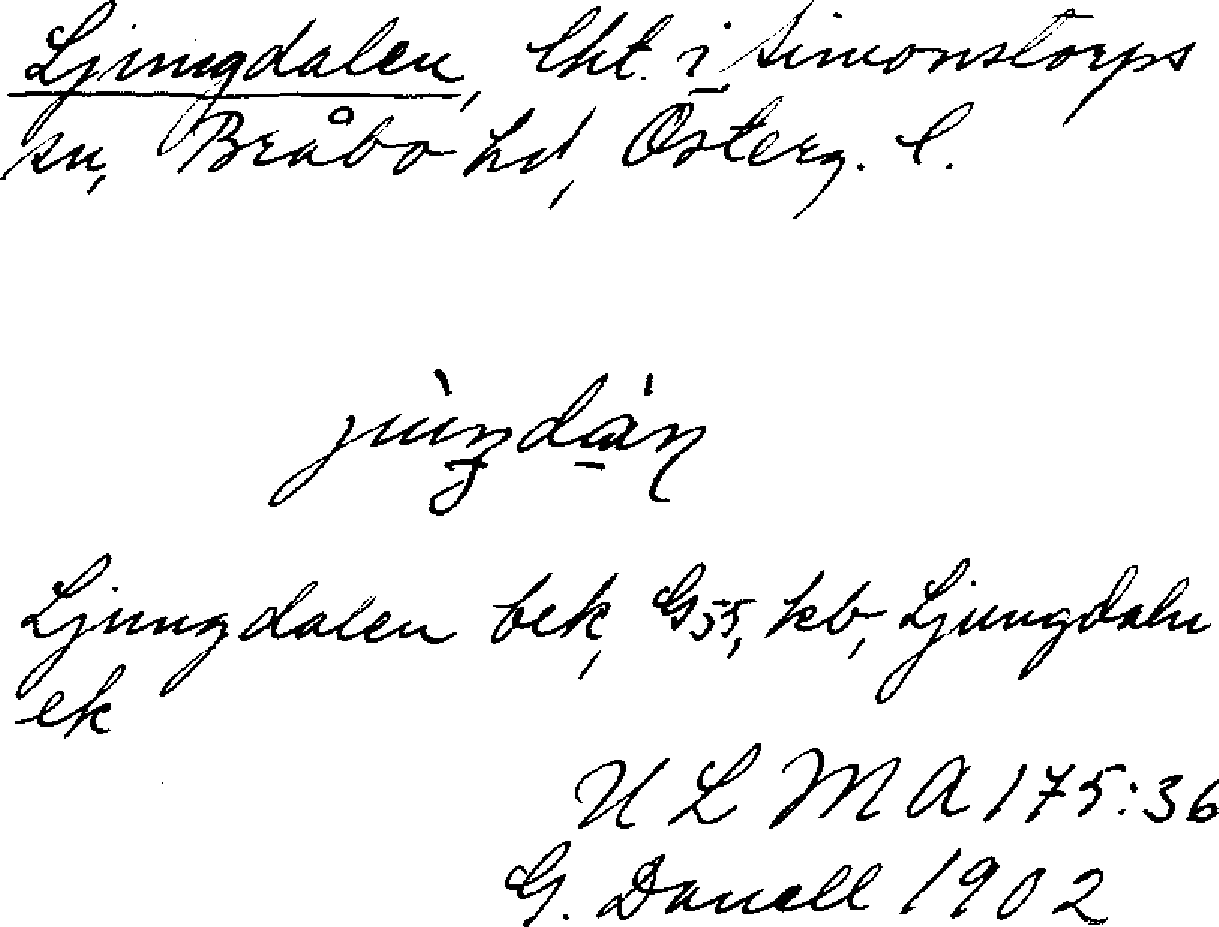 Ljungdalen, lht. i Simonstorps
sn, Bråbo hd, Österg. l.
Ljungdalen bek, G55, kb, Ljungdaln
ek
ULMA 175:36
G. Danell 1902